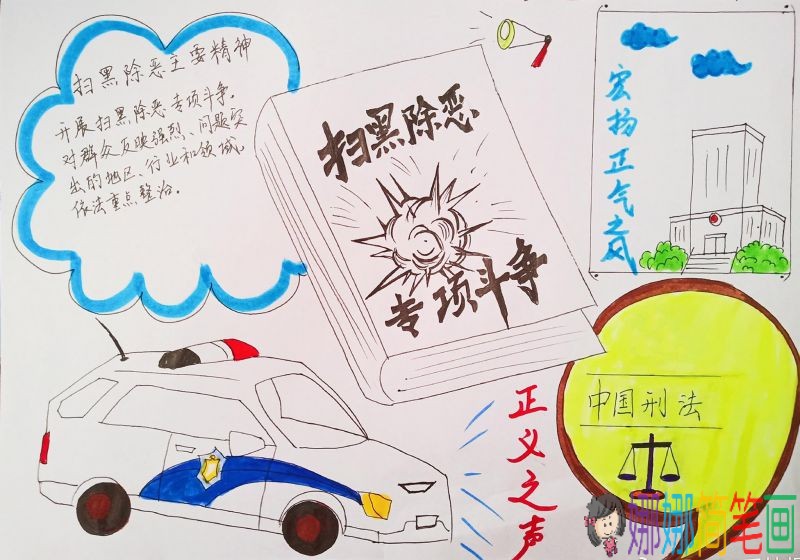 扫黑除恶主要精神
开展扫黑除恶专项斗争.
对群众反映强烈、问题突
出的地区、行业和领域,
依法重点整治。
扫黑除恶
专项斗争
宏扬正气之风
正义之声
中国刑法
娜娜简笔画